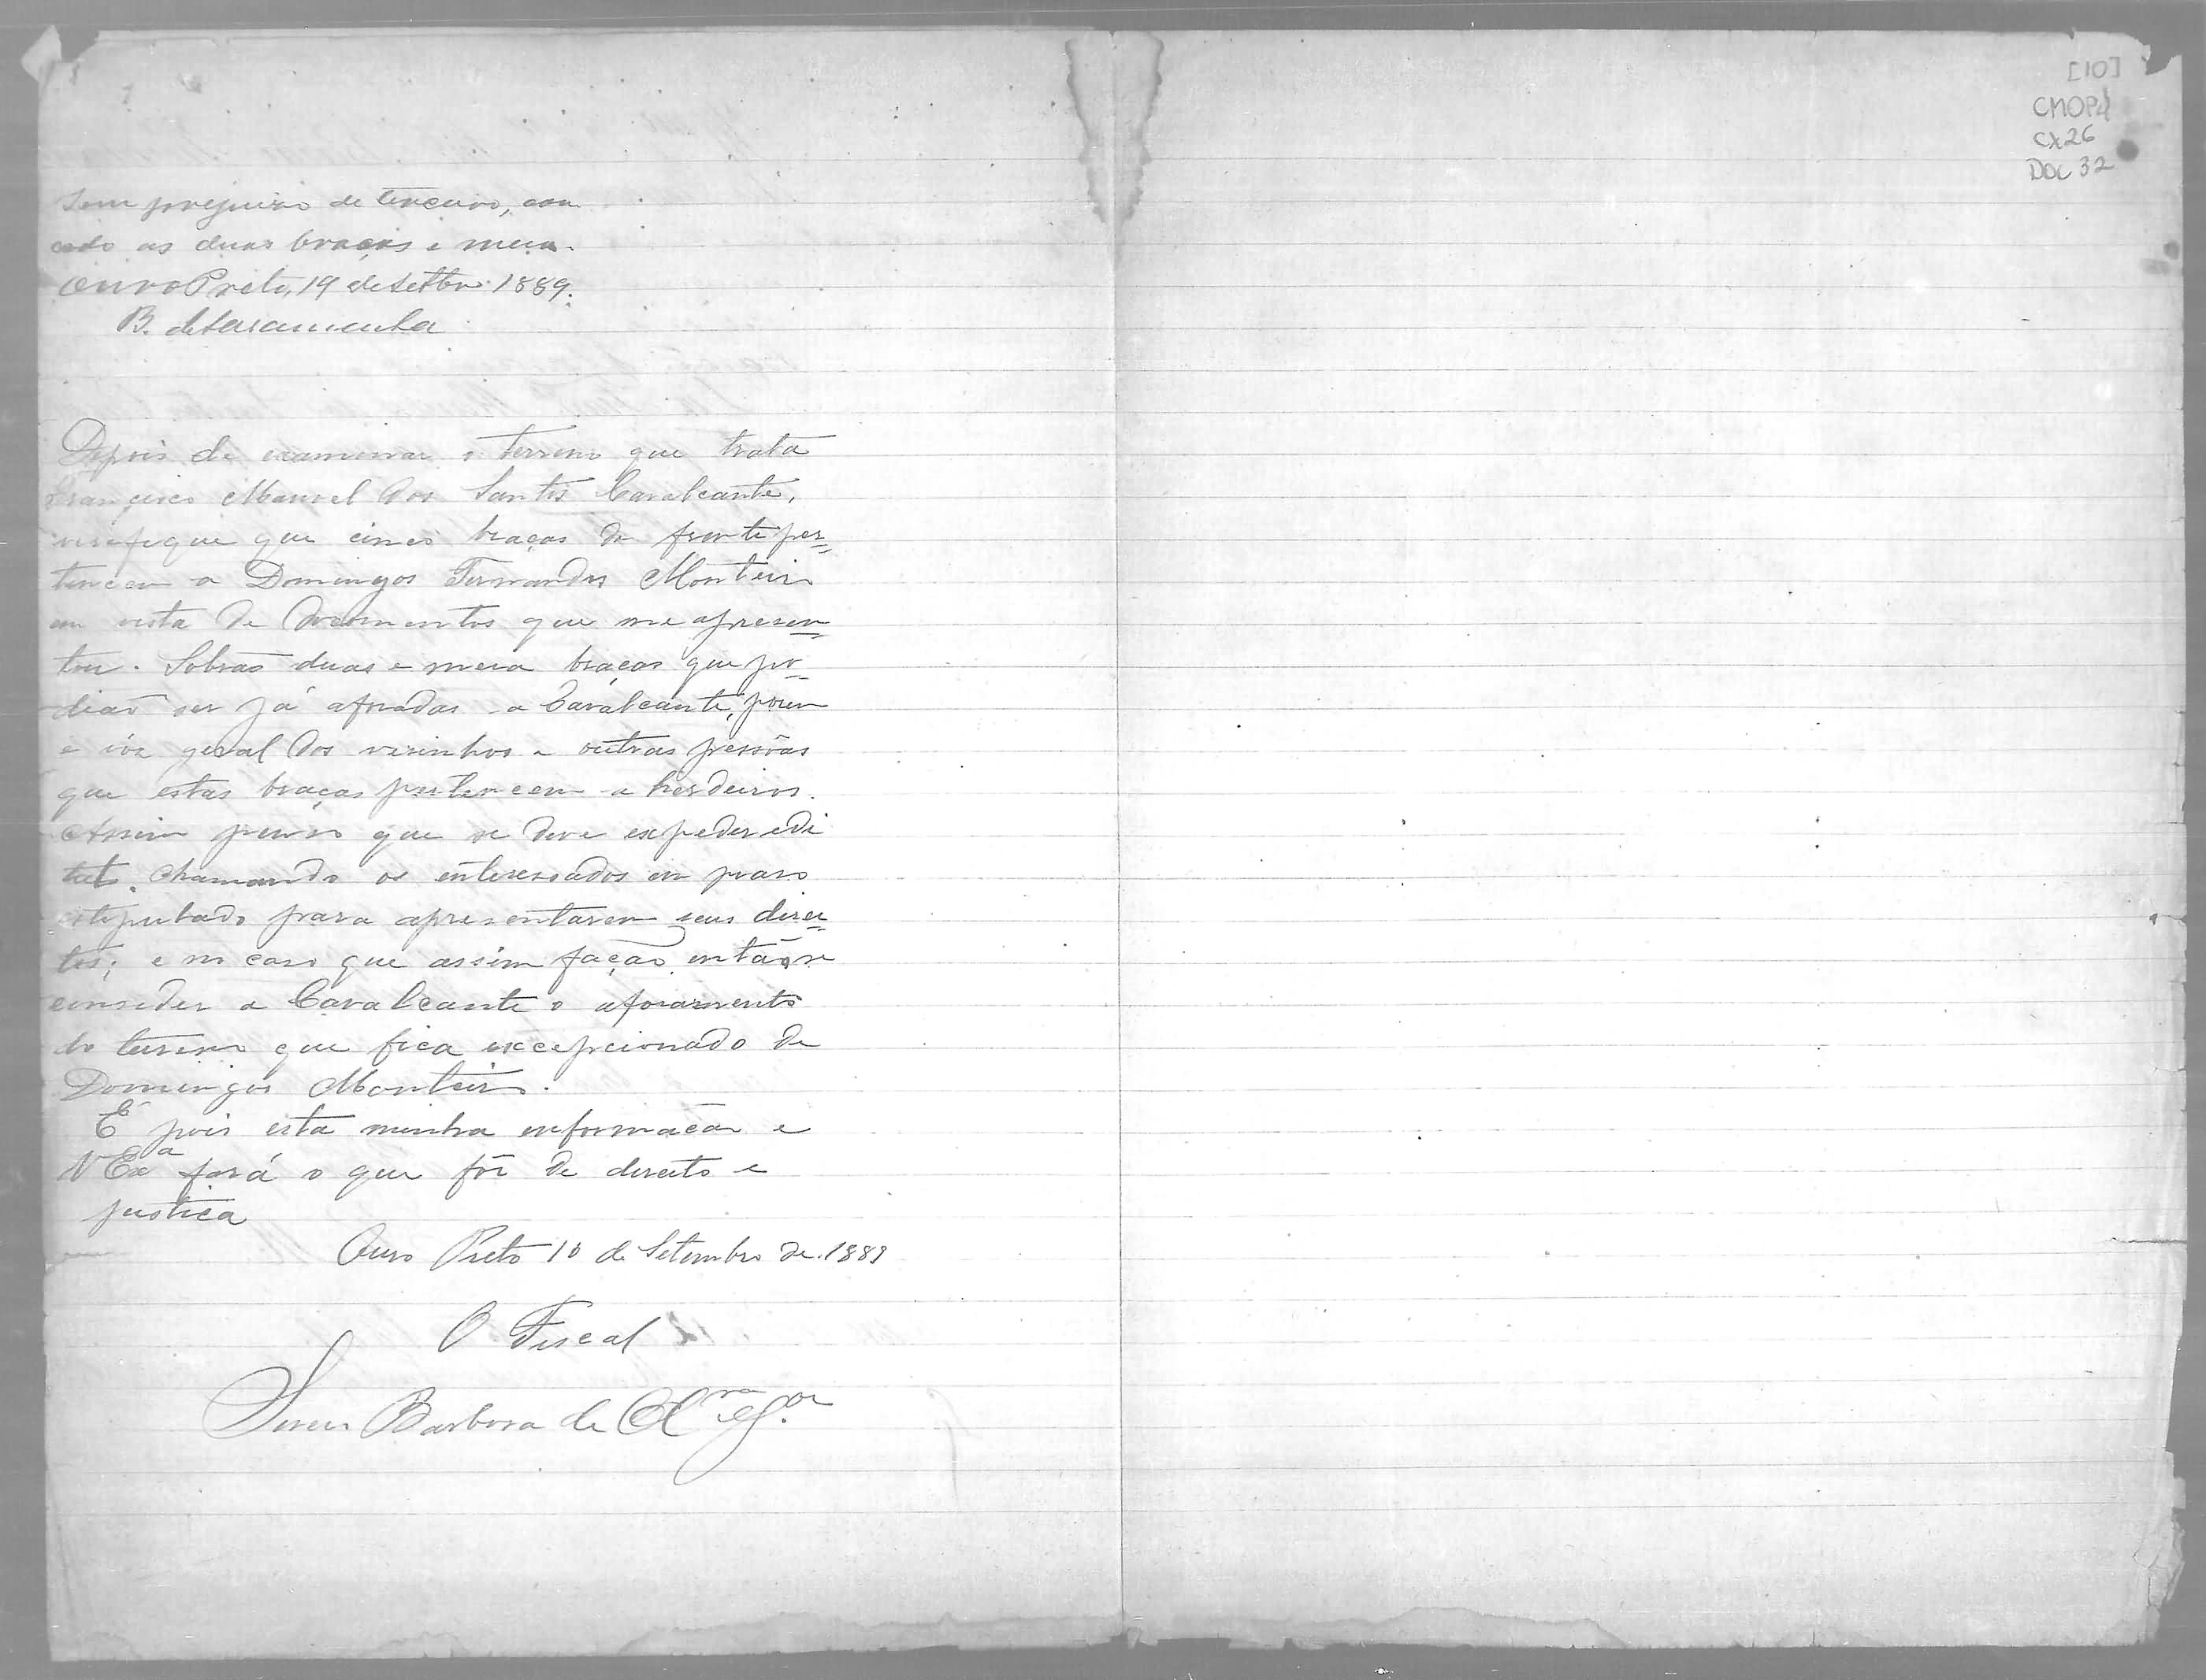 [10]
CMOP
CX26
DOC 32
Sem prejuizo de terceiro, con
cedo as duas braças e meia.
Ouro Preto, 19 de Setbro 1889.
B. de Saramenha
Depois de examinar o terreno que trata
Francisco Manoel dos Santos Cavalcante,
verifiquei que cinco braças de frente per=
tencem a Domingos Fernandes Monteiro
em vista de documentos que me apresen=
tou. Sobrão duas e meia braças que po=
dião ser já aforadas a Cavalcante, porem
é vóz geral dos vizinhos e outras pessôas
que estas braças pertencem a herdeiros.
Assim penso que se deve expedir edi
taes chamando os interessados em praso
estipulado para apresentarem seus direi=
tos; e no caso que assim fação então se
conseder a Cavalcante o aforamento
do terreno que fica excepcionado de
Domingos Monteiro.
É pois esta minha informação e
V Exª fará o que fôr de direito e
justiça
Ouro Preto 10 de Setembro de 1889
O Fiscal
Barbosa de